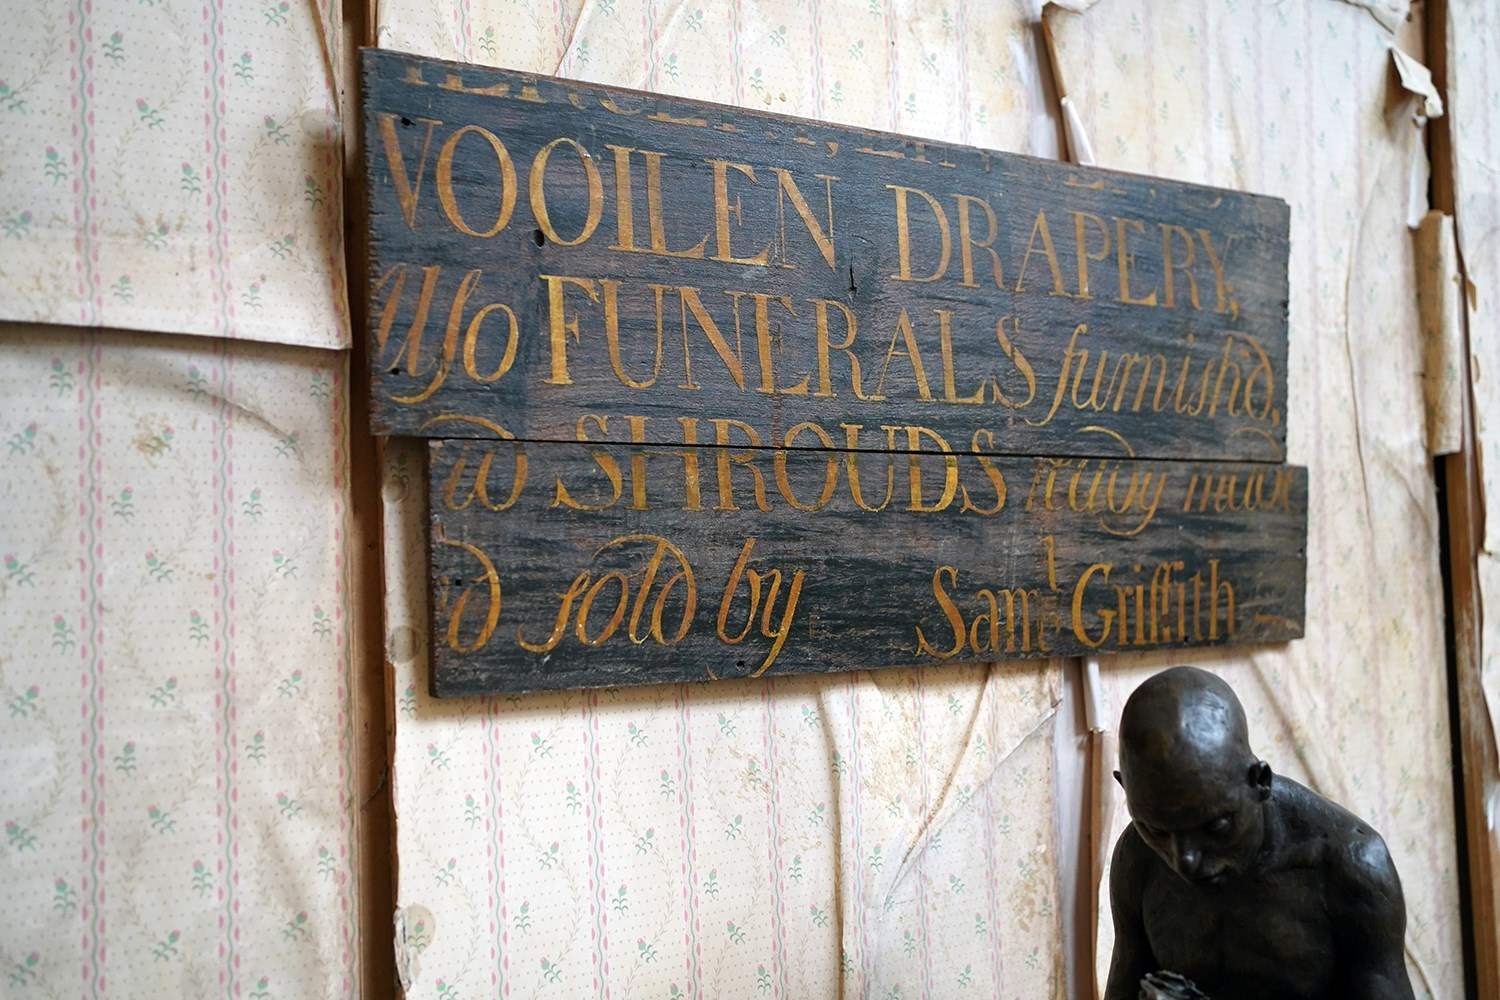 WOOLLEN DRAPERY,
Also FUNERALS furnish'd,
nd SHROUDS ready made
d sold by Saml Griffith